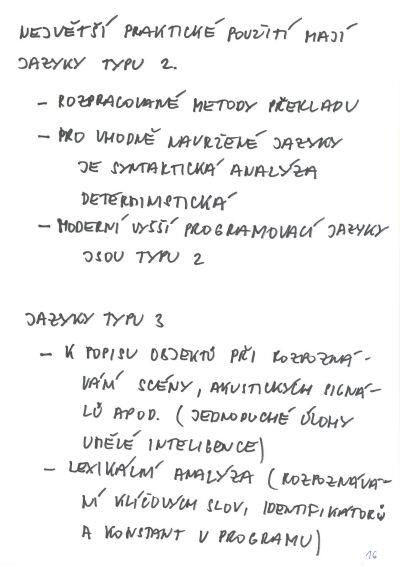 NEJVĚTŠÍ PRAKTICKÉ POUŽITÍ MAJÍ
JAZYKY TYPU 2.
– ROZPRACOVANÉ METODY PŘEKLADU
– PRO VHODNĚ NAVRŽENÉ JAZYKY
JE SYNTAKTICKÁ ANALÝZA
DETERMINISTICKÁ
– MODERNÍ VYŠŠÍ PROGRAMOVACÍ JAZYKY
JSOU TYPU 2
JAZYKY TYPU 3
– K POPISU OBJEKTŮ PŘI ROZPOZNÁ-
VÁNÍ SCÉNY, AKUSTICKÝCH SIGNÁ-
LŮ APOD. (JEDNODUCHÉ ÚLOHY
UMĚLÉ INTELIGENCE)
– LEXIKÁLNÍ ANALÝZA (ROZPOZNÁVÁ-
NÍ KLÍČOVÝCH SLOV, IDENTIFIKÁTORŮ
A KONSTANT V PROGRAMU)
16